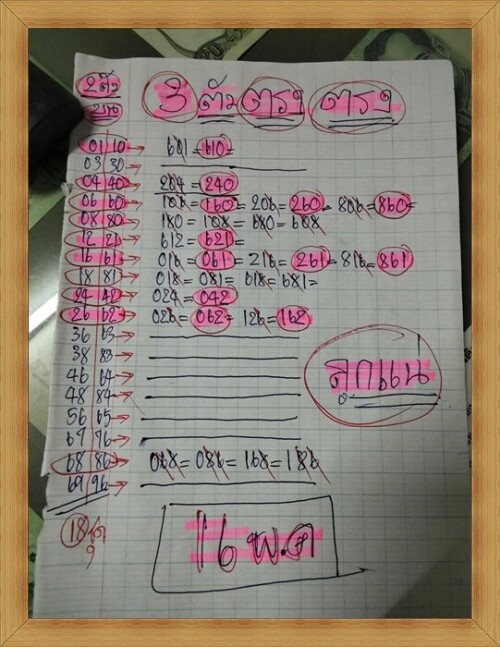 2ตัว 3 ตัว ตรง ตรง
บน
01 10 → 601 = 610 =
03 30 →
04 40 → 204 = 240
06 60 → 106 = 160 = 206 = 260 = 806 = 860 =
08 80 → 180 = 108 = 680 = 608
12 21 → 612 = 621 =
16 61 → 016 = 061 = 216 = 261 = 816 = 861
18 81 → 018 = 081 = 618 = 681 =
24 42 → 024 = 042
26 62 → 026 = 062 = 126 = 162
36 63 →
38 83 →
46 64 →
48 84 →
56 65 →
67 76 →
68 86 → 068 = 086 = 168 = 186
69 96 →
18
16 พ.ค